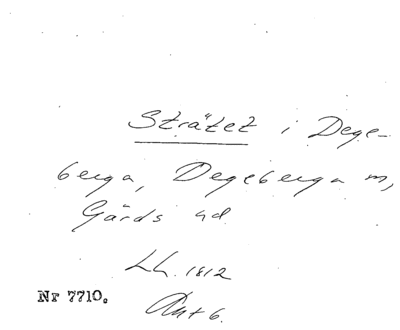 Strätet i Dege-
berga, Degeberga m,
Gärds hd
Lh. 1812
Nr 7710.
Akt 6.